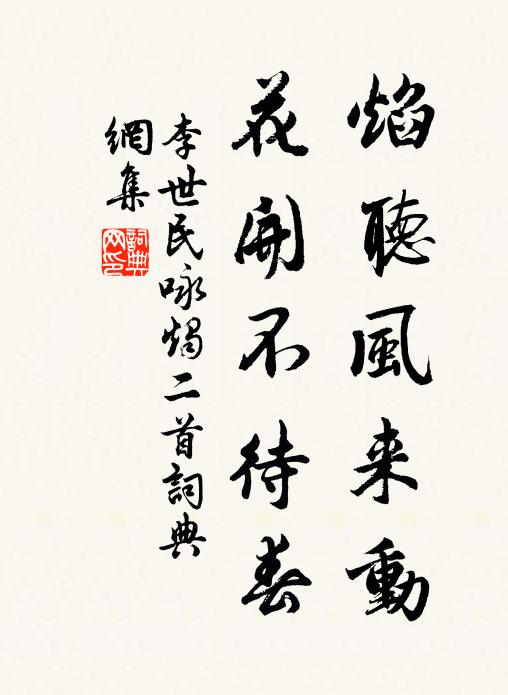 焰聽風来動
花開不待春
李世民咏燭二首詞典
網集
詞典
网印